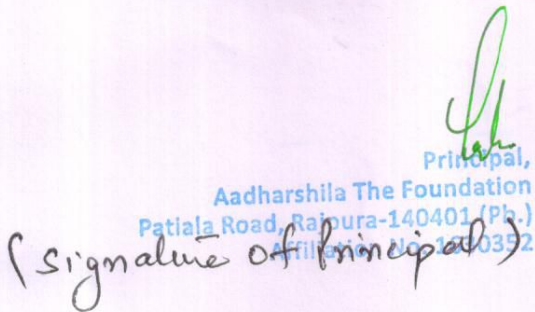 Principal,
Aadharshila The Foundation
Patiala Road, Rajpura-140401 (Pb.)
Affiliation No. 1630352
(Signature of Principal)